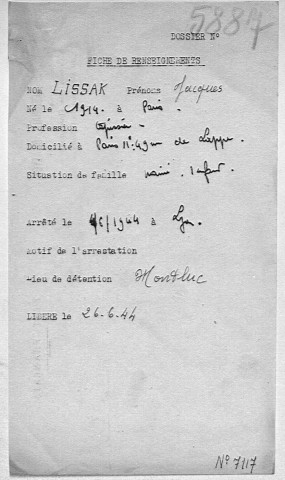 5887
DOSSIER N°
FICHE DE RENSEIGNEMENTS
NOM LISSAK Prénoms Jacques
Né le 1914 à Paris.
Profession
Domicilié à Paris 11e 49 rue de Lappe
Situation de famille marié. 1 enfant.
Arrêté le /6/1944 à Lyon.
Motif de l'arrestation
Lieu de détention Montluc
LIBERE le 26-6-44
N° 7117